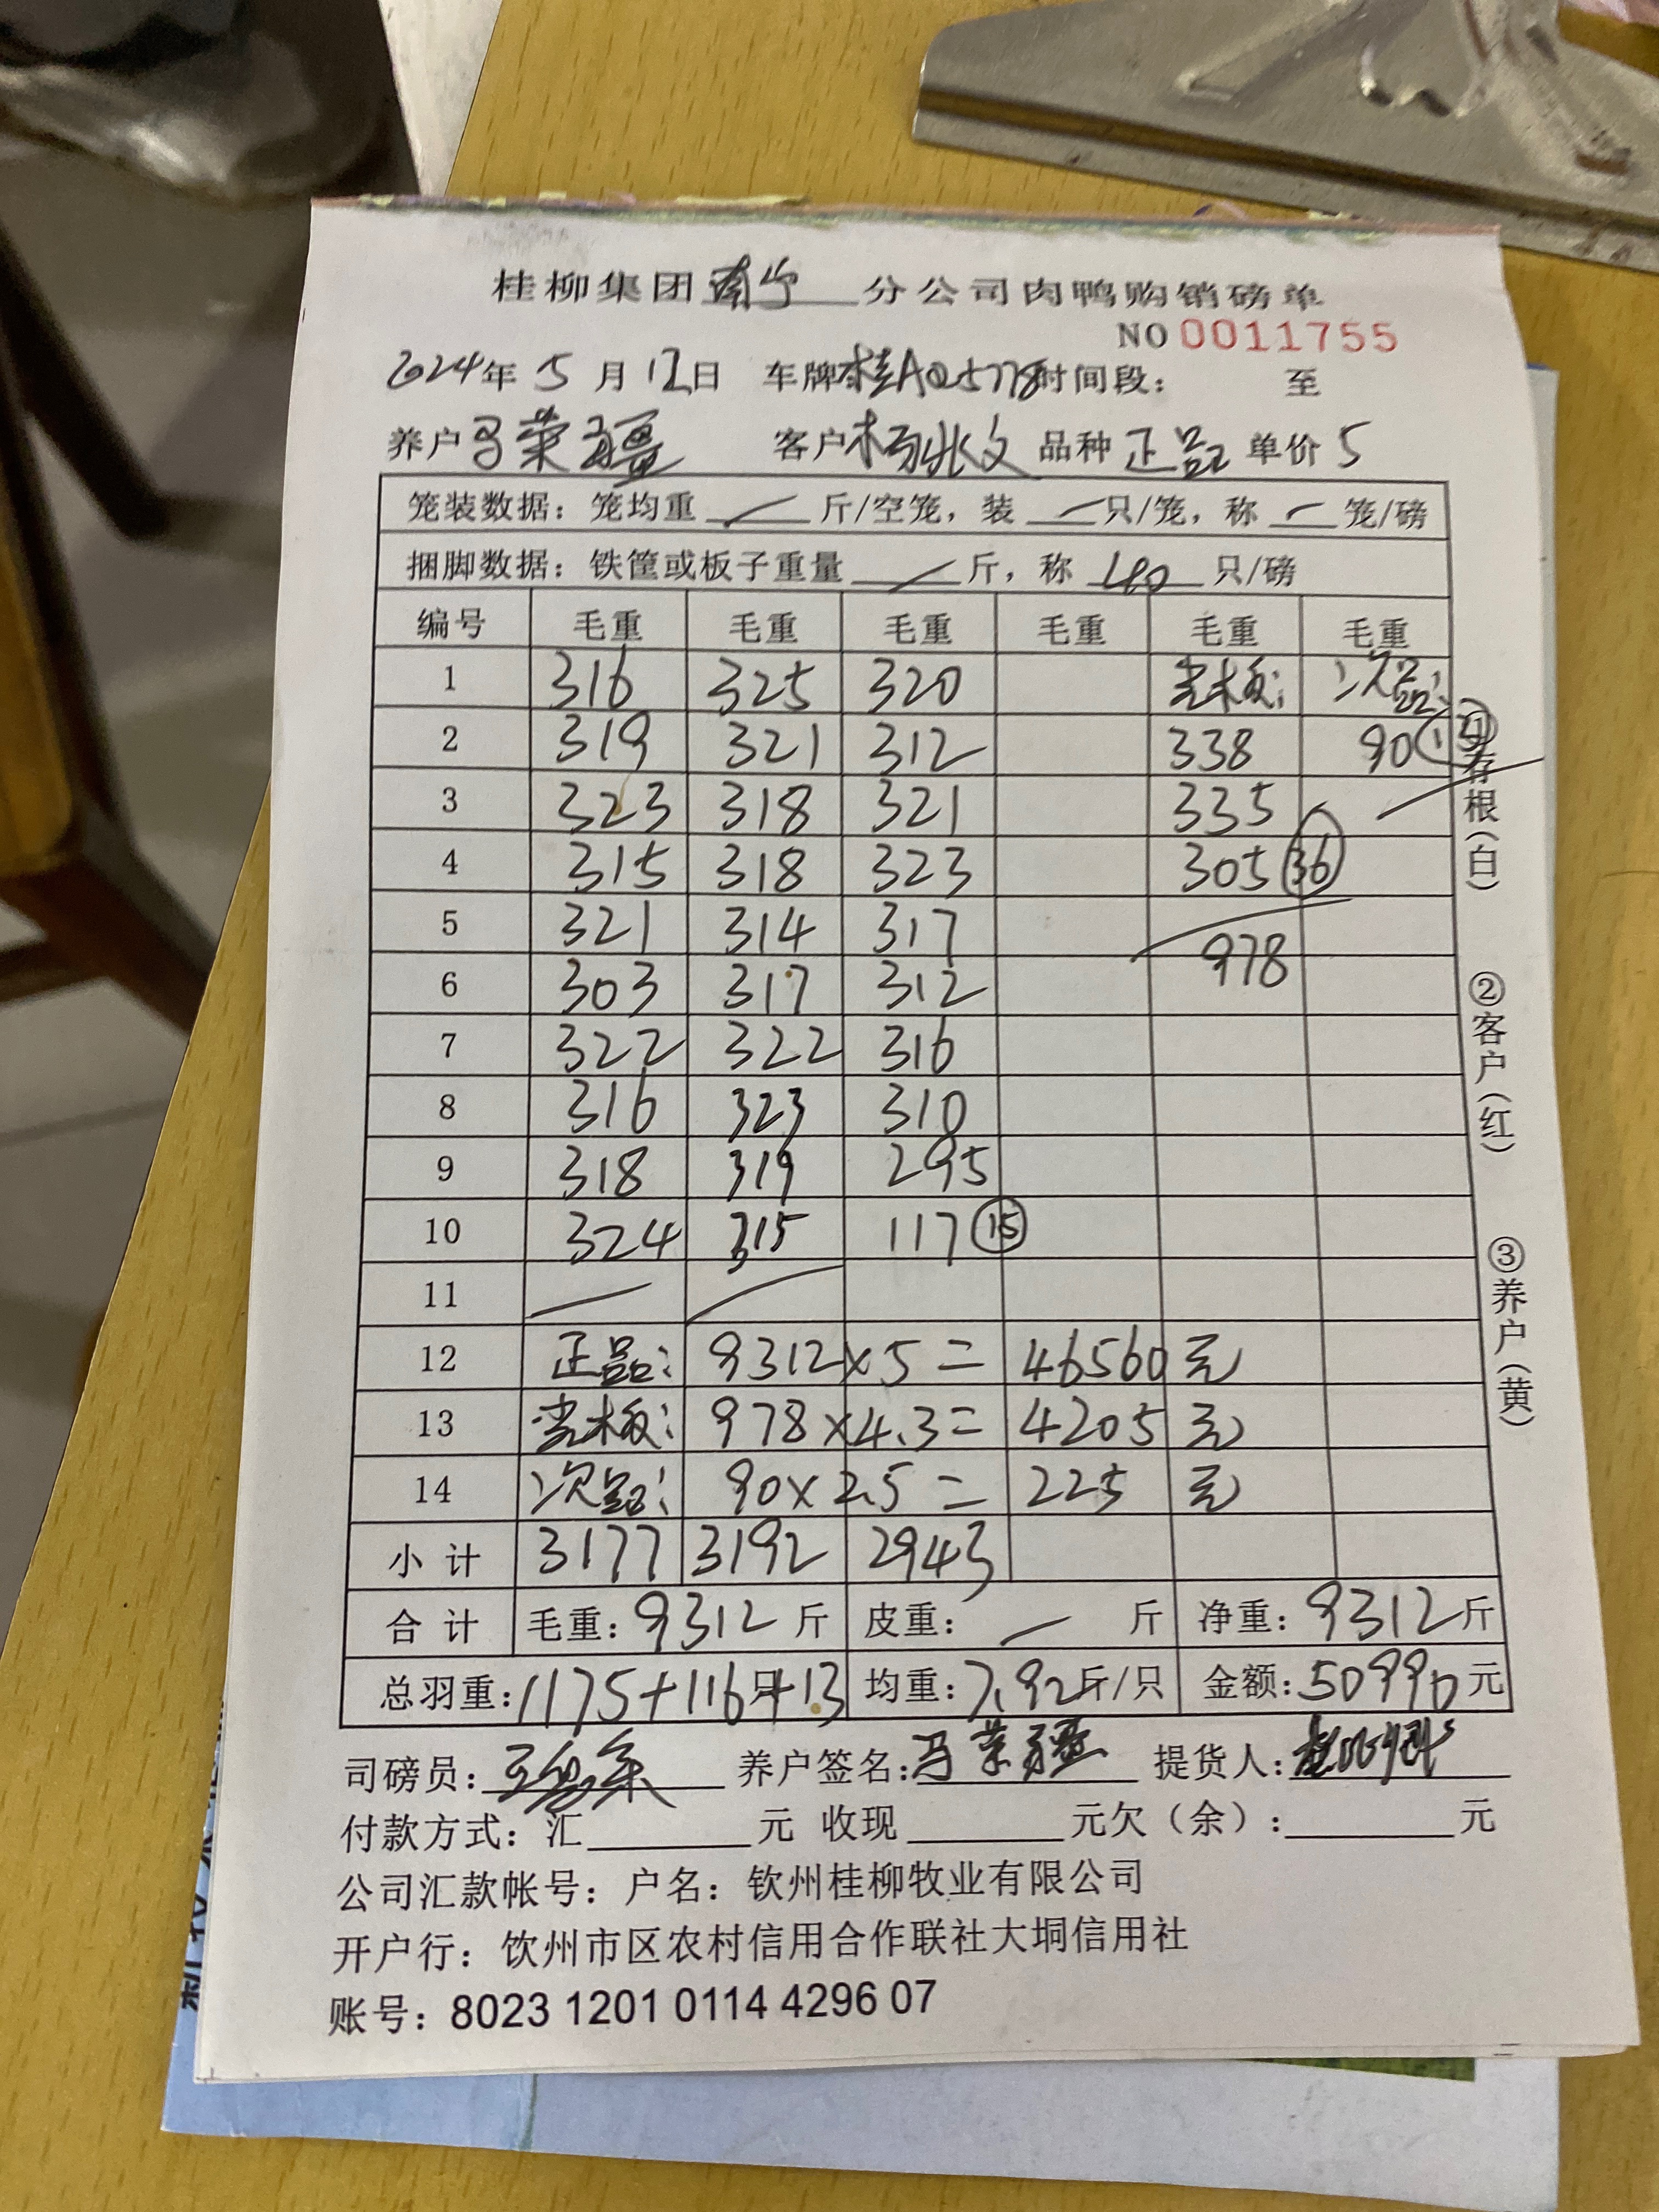 桂柳集团南宁分公司肉鸭购销磅单
NO 0011755
2024年 5 月 12日 车牌桂AQ5778时间段： 至
养户马荣疆 客户杨兆文 品种 正品 单价 5
笼装数据：笼均重 / 斤/空笼，装 / 只/笼，称 / 笼/磅
捆脚数据：铁筐或板子重量 / 斤，称 40 只/磅
编号 毛重 毛重 毛重 毛重 毛重 毛重
1 316 325 320 光板： 次品：
2 319 321 312 338 90 13
3 323 318 321 335
4 315 318 323 305 36
5 321 314 317
6 303 317 312 978
7 322 322 316
8 316 323 310
9 318 319 295
10 324 315 117 15
11
12 正品： 9312×5 = 46560 元
13 光板： 978×4.3= 4205 元
14 次品： 90×2.5 = 225 元
小 计 3177 3192 2943
合 计 毛重：9312 斤 皮重： / 斤 净重：9312斤
总羽重：1175+116只+13 均重：7.92斤/只 金额：50990元
司磅员： 养户签名：马荣疆 提货人：
付款方式：汇 元 收现 元欠（余）： 元
公司汇款帐号：户名：钦州桂柳牧业有限公司
开户行：钦州市区农村信用合作联社大垌信用社
账号：8023 1201 0114 4296 07
存根（白）
②客户（红）
③养户（黄）